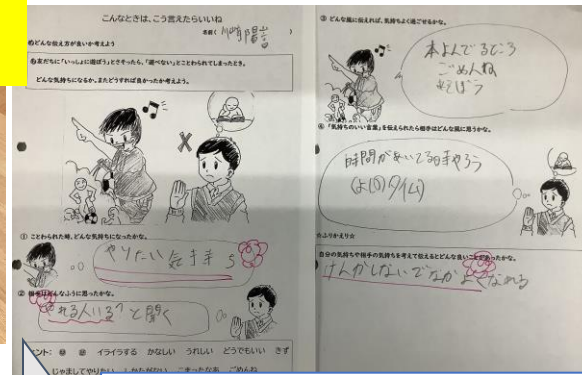 こんなときは、こう言えたらいいね
名前(
めどんな伝え方が良いか考えよう
友だちに「いっしょに遊ぼう」とさそったら、「遊べない」とことわられてしまったとき、
どんな気持ちになるか。またどうすれば良かったか考えよう。
① ことわられた時、どんな気持ちになったかな。
やりたい気持ち
ふうに思ったかな。
れる人いる?と聞く
ント:
イライラする かなしい うれしい どうでもいい きず
じゃましてやりたい しかたがない こまったなあ ごめんね
③ どんな風に伝えれば、気持ちよく過ごせるかな。
本よんでるところ
ごめんね
あそぼう
④ 「気持ちのいい言葉」を伝えられたら相手はどんな風に思うかな。
時間があいてる時やろう
タイム)
☆ふりかえり☆
自分の気持ちや相手の気持ちを考えて伝えるとどんな良いことがあったかな。
けんかしないでなかよくなれる